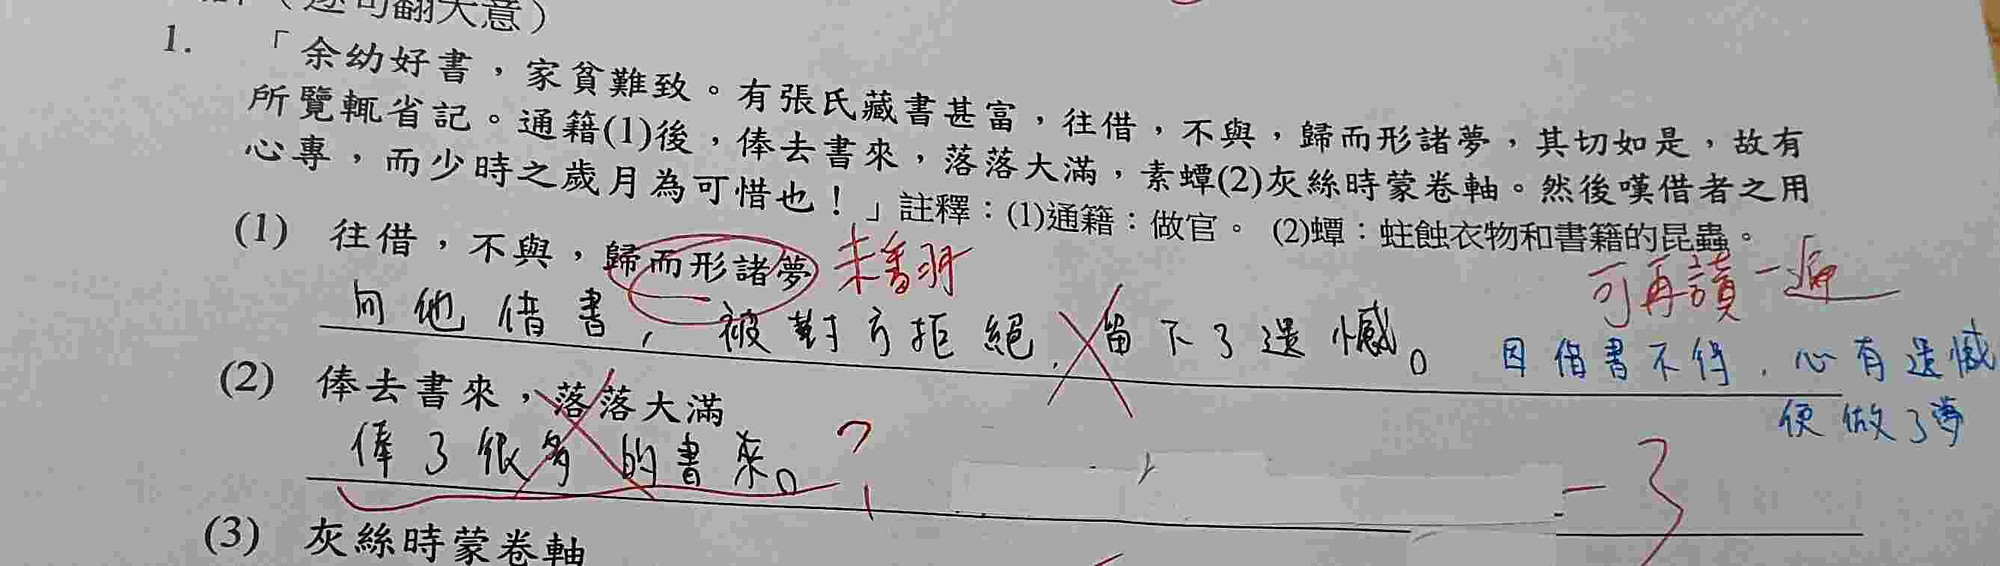 （逐句翻大意）
1. 「余幼好書，家貧難致。有張氏藏書甚富，往借，不與，歸而形諸夢，其切如是，故有
所覽輒省記。通籍(1)後，俸去書來，落落大滿，素蟫(2)灰絲時蒙卷軸。然後嘆借者之用
心專，而少時之歲月為可惜也！」註釋：(1)通籍：做官。 (2)蟫：蛀蝕衣物和書籍的昆蟲。
(1) 往借，不與，歸而形諸夢
可再讀一遍
向他借書，被對方拒絕，留下了遺憾。
因借書不得，心有遺憾
便做了夢
(2) 俸去書來，落落大滿
俸了很多的書來。?
-3
(3) 灰絲時蒙卷軸